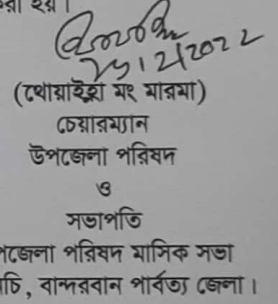 হয়।
২১।2।2022
(থোয়াইহ্লা মং মারমা)
চেয়ারম্যান
উপজেলা পরিষদ
ও
সভাপতি
পজেলা পরিষদ মাসিক সভা
চি, বান্দরবান পার্বত্য জেলা।